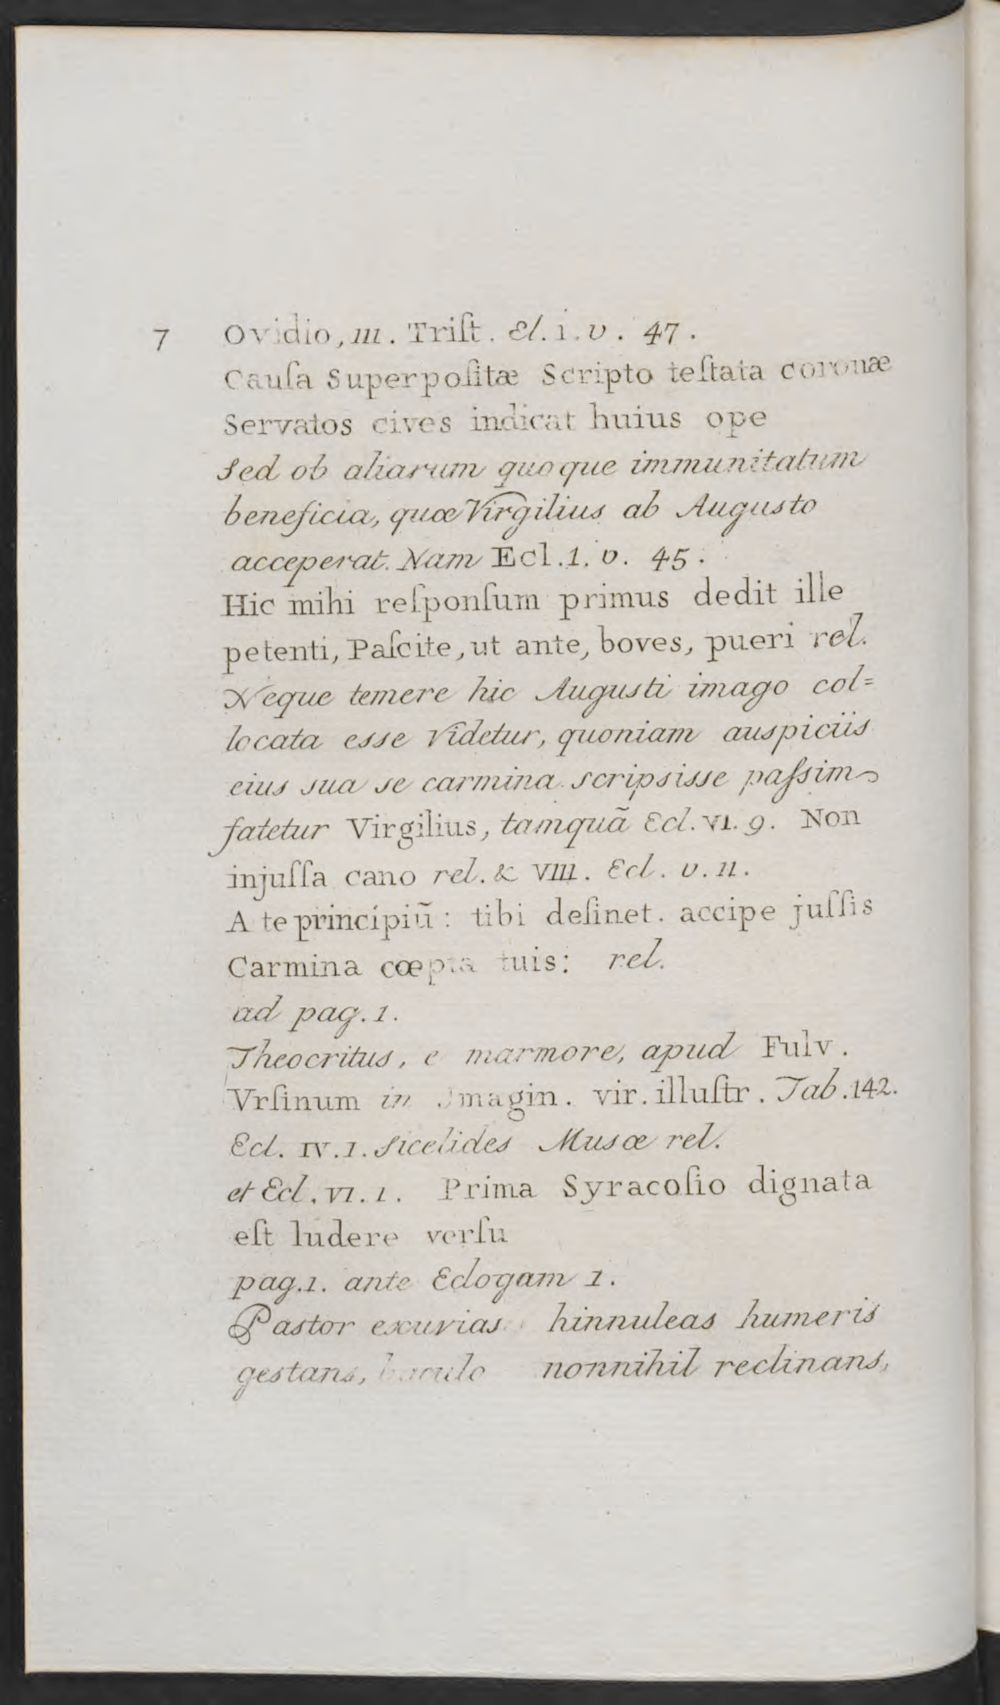 7 Ovidio, III. Triſt. El. i. v. 47.
Cauſa Superpoſitæ Scripto teſtata coronæ
Servatos cives indicat huius ope
Sed ob aliarum quoque immunitatum
beneficia, quæ Virgilius ab Augusto
acceperat. Nam Ecl. 1. v. 45.
Hic mihi reſponſum primus dedit ille
petenti, Paſcite, ut ante, boves, pueri rel.
Neque temere hic Augusti imago col=
locata esse videtur, quoniam auspiciis
eius sua se carmina scripsisse paſsim
fatetur Virgilius, tamquã Ecl. VI. 9. Non
injuſſa cano rel. & VIII. Ecl. v. 11.
A te principiũ: tibi deſinet. accipe juſſis
Carmina cœpta tuis: rel.
ad pag. 1.
Theocritus, e marmore, apud Fulv.
Vrſinum in Imagin. vir. illuſtr. Tab. 142.
Ecl. IV. 1. Sicelides Musæ rel.
et Ecl. VI. 1. Prima Syracoſio dignata
eſt ludere verſu
pag. 1. ante Eclogam 1.
Pastor exuvias hinnuleas humeris
gestans, baculo nonnihil reclinans,